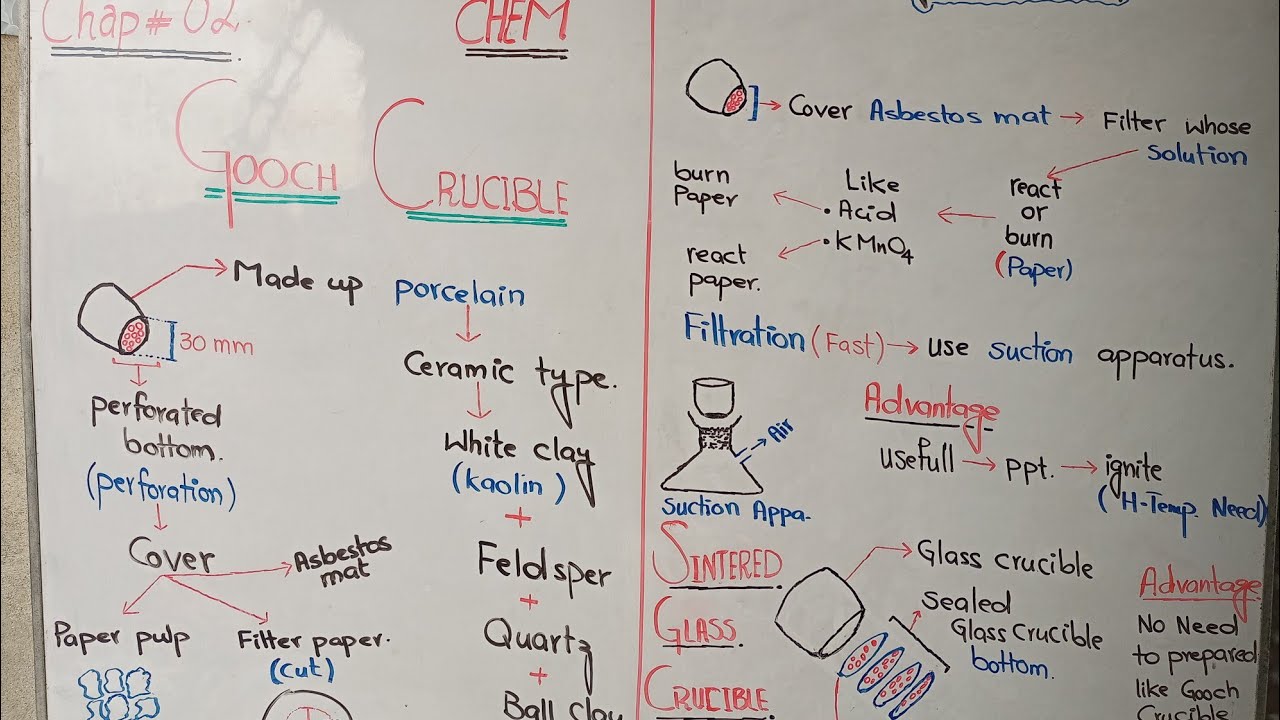 Chap # 02.
CHEM
GOOCH CRUCIBLE
Made up porcelain
30 mm
Ceramic type.
perforated
bottom.
(perforation)
White clay
(kaolin)
+
Feldsper
+
Quartz
+
Ball clay
Cover
Asbestos
mat
Paper pulp
Filter paper.
(cut)
Cover Asbestos mat → Filter whose
solution
react
or
burn
(Paper)
Like
• Acid
• KMnO4
burn
Paper
react
paper.
Filtration (Fast) → use suction apparatus.
Air
Suction Appa.
Advantage
usefull → ppt. → ignite
(H-Temp. Need)
SINTERED
GLASS
CRUCIBLE
Glass crucible
Sealed
Glass Crucible
bottom.
Advantage
No Need
to prepared
like Gooch
Crucible